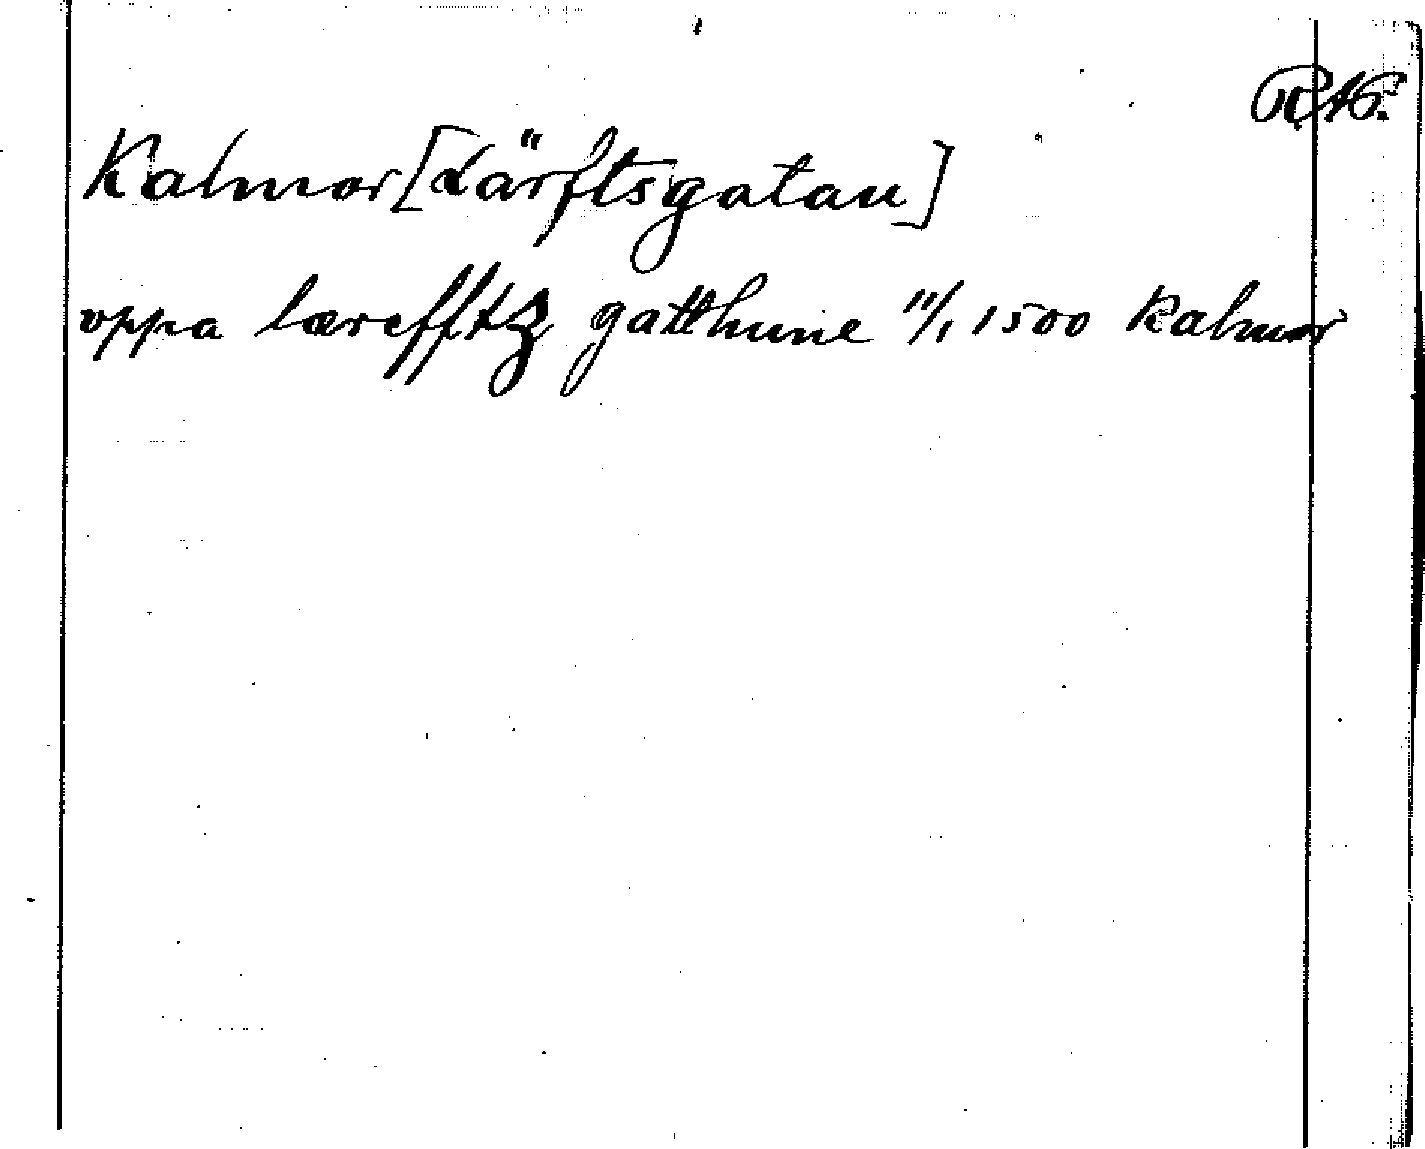 RAp.
Kalmar [Lärftsgatan]
oppa læreffttz gatthune 11/1 1500 Kalmar